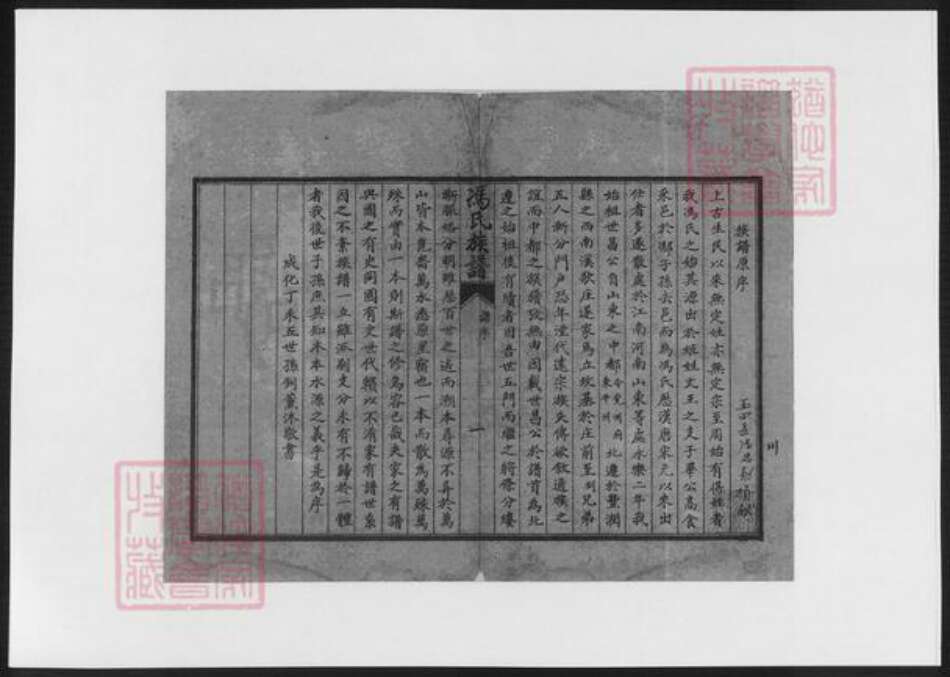 族譜原序
上古生民以來無定姓亦無定宗至周始有得姓者
我馮氏之始其源出於姬姓文王之支子畢公高食
采邑於馮子孫去邑而為馮氏歷漢唐宋元以來出
仕者多遂散處於江南河南山東等處永樂二年我
始祖世昌公自山東之中都今兗州府東平州北遷於豐潤
縣之西南溪歌庄遂家焉立墳墓於庄前至 列兄弟
五人新分門戶恐年湮代遠宗族失傳欲敘過族之
誼而中都之族譜攷無由因載世昌公於譜首為北
遷之始祖後有續者因吾世五門而繼之將條分縷
晰脈絡分明雖歷百世之遠而溯本尋源不異於萬
山皆本崑崙萬水悉原星宿也一本而散為萬殊萬
殊而實由一本則斯譜之修烏容已哉夫家之有譜
與國之有史同國有史世代賴以不淆家有譜世系
因之不紊族譜一立雖派別支分未有不歸於一體
者我後世子孫庶其知木本水源之義乎是為序
成化丁未五世孫 薰沐敬書
馮氏族譜
譜序
一